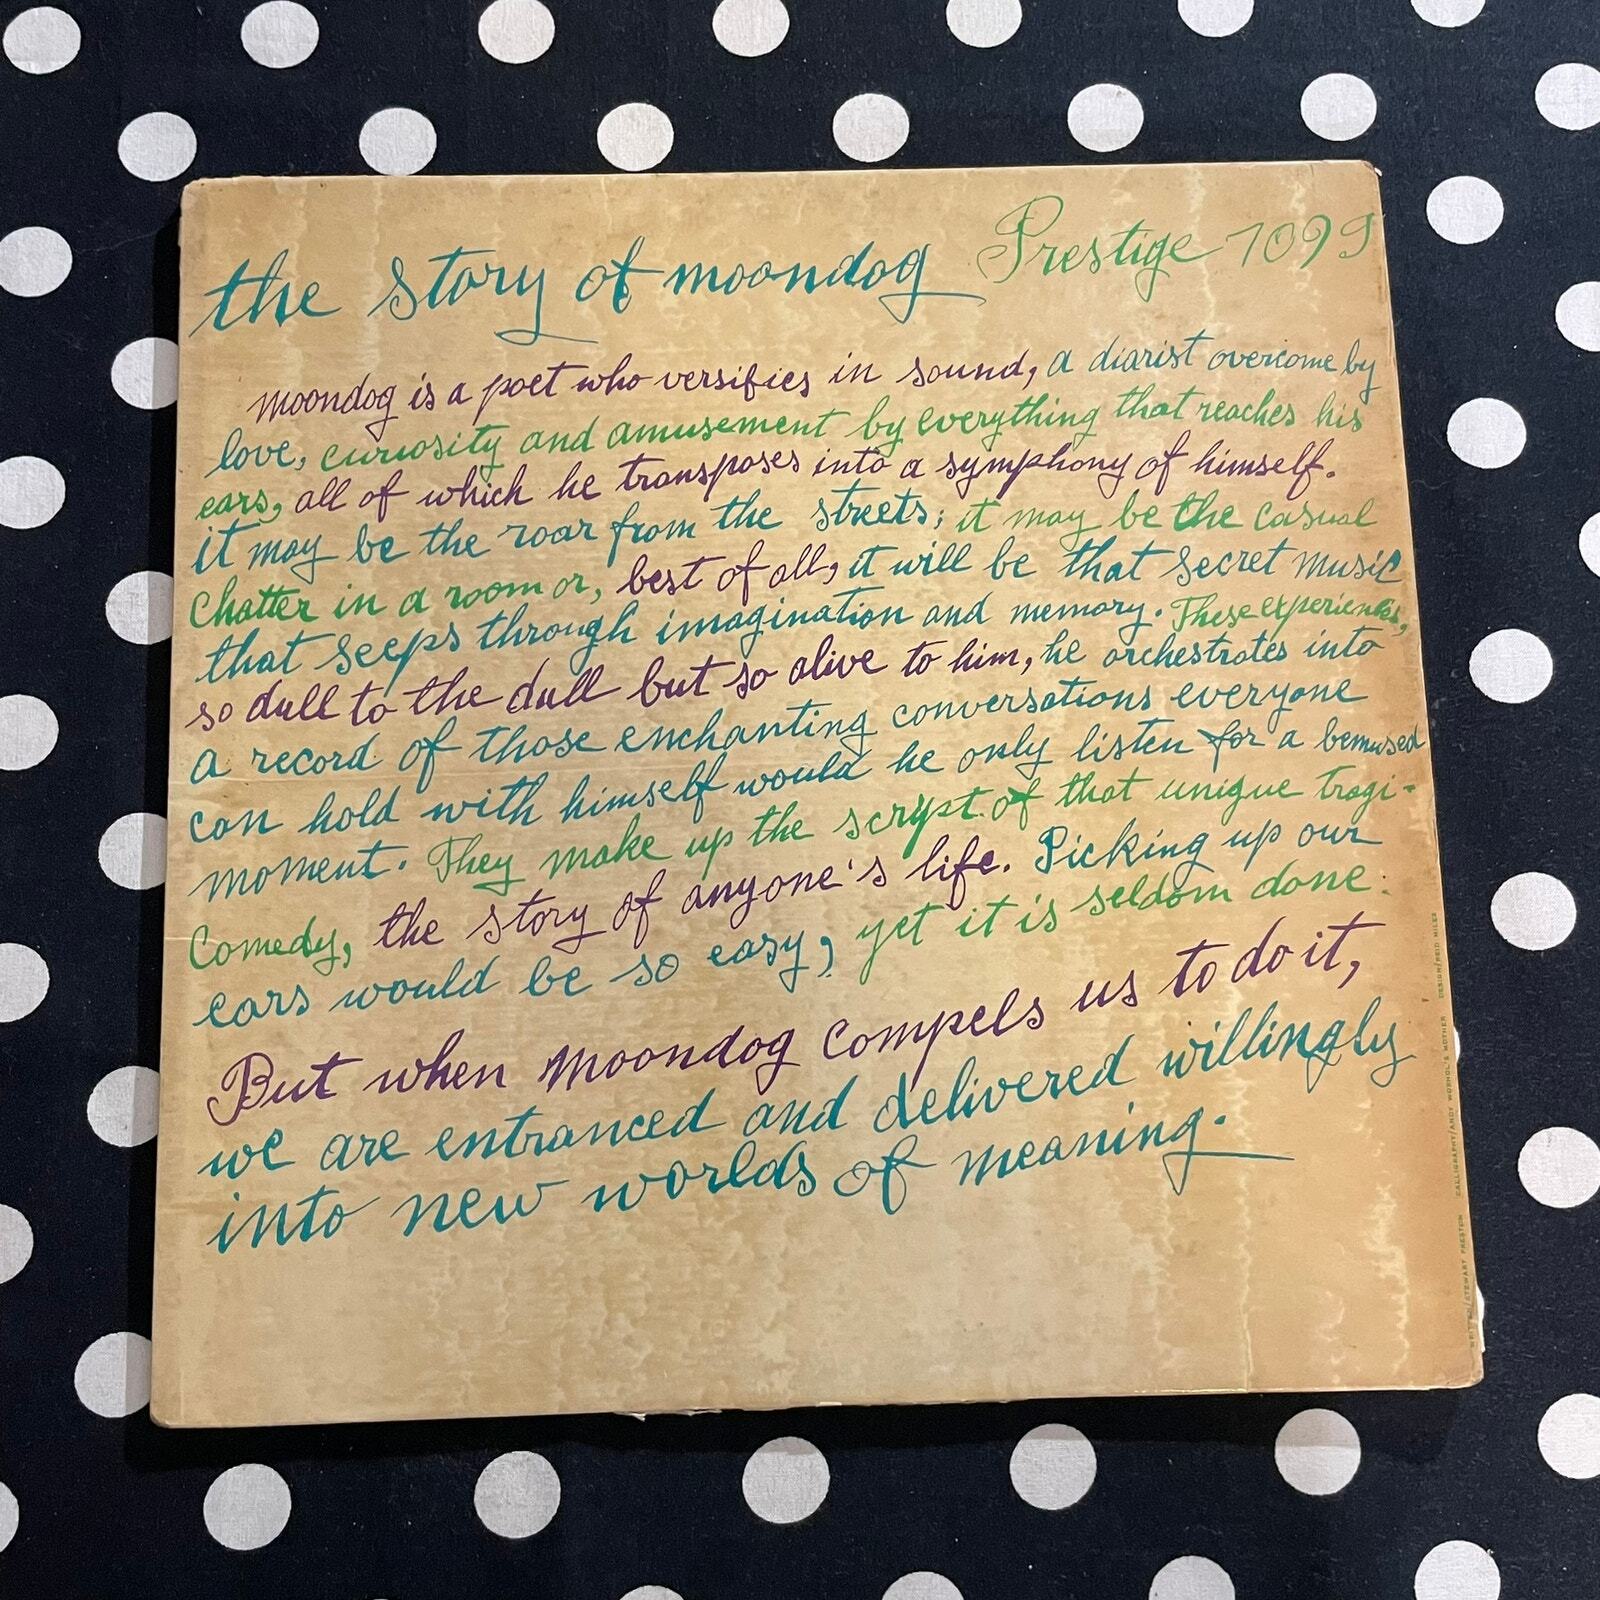 the story of moondog Prestige 7099
moondog is a poet who versifies in sound, a diarist overcome by
love, curiosity and amusement by everything that reaches his
ears, all of which he transposes into a symphony of himself.
it may be the roar from the streets; it may be the casual
Chatter in a room or, best of all, it will be that secret music
that seeps through imagination and memory. These experiences,
so dull to the dull but so alive to him, he orchestrates into
a record of those enchanting conversations everyone
can hold with himself would he only listen for a bemused
moment. They make up the script of that unique tragi-
Comedy, the story of anyone's life. Picking up our
ears would be so easy, yet it is seldom done.
But when moondog compels us to do it,
we are entranced and delivered willingly
into new worlds of meaning.
WRITTEN/STEWART PRESTON CALLIGRAPHY/ANDY WORHOL'S MOTHER DESIGN/REID MILES